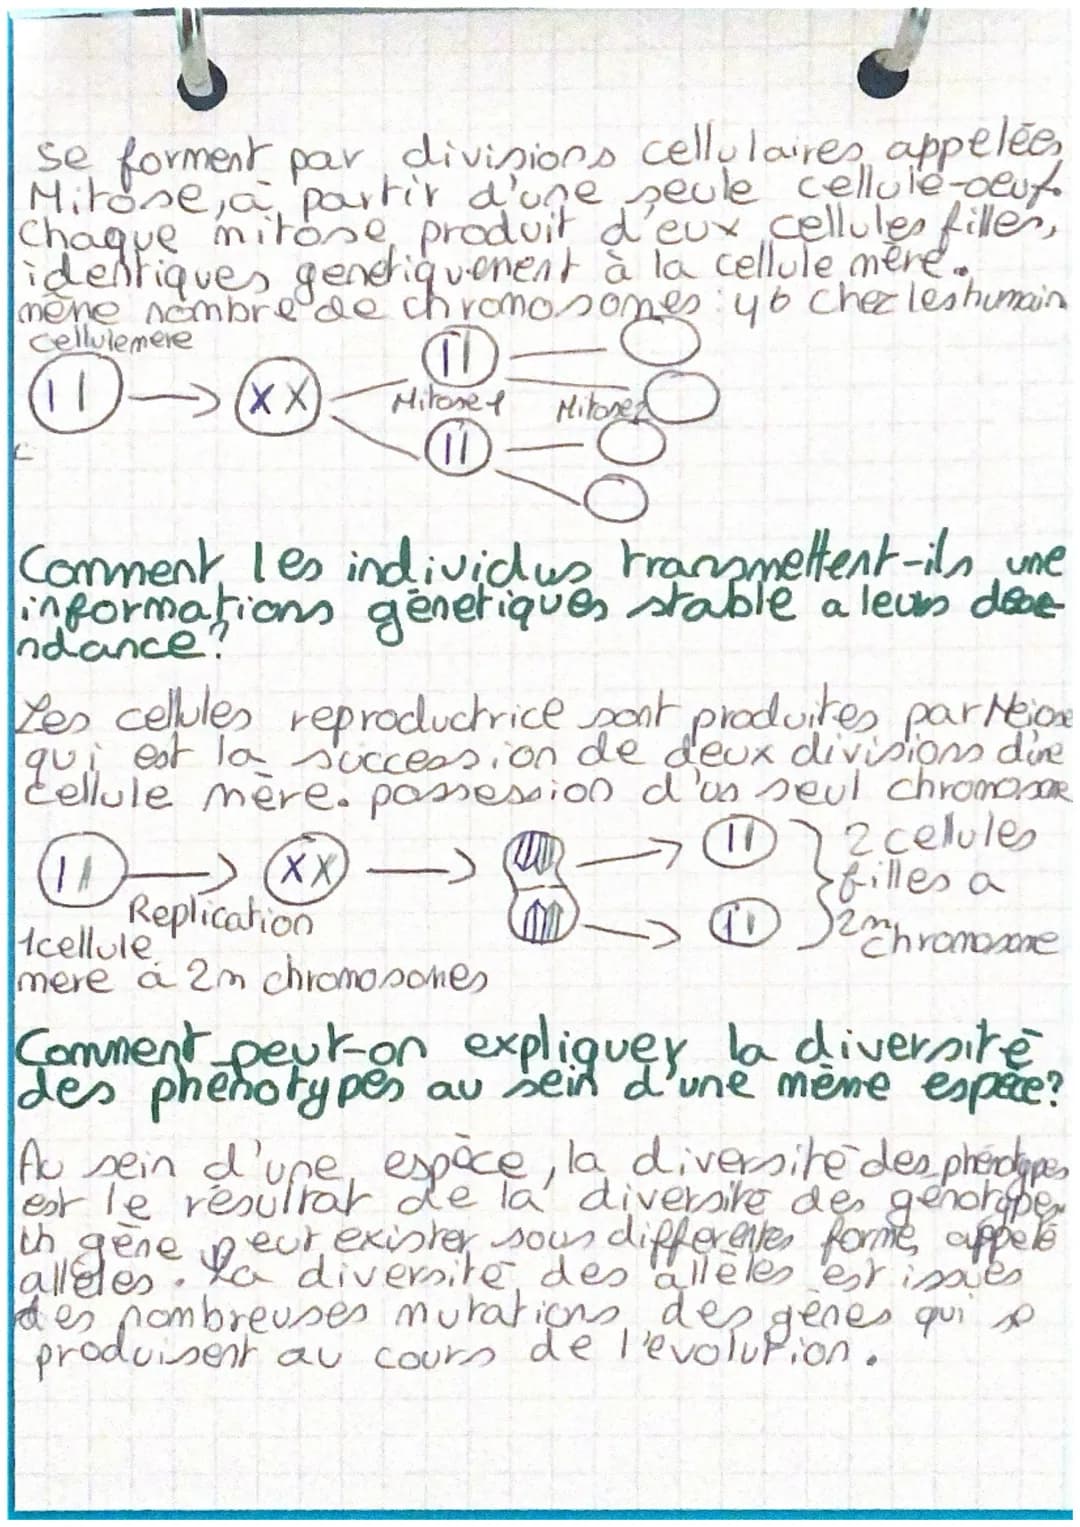 se forment par divisions cellulaires appelées
Mitose, à partir d'une seule cellule-oeuf.
Chaque mitose produit d'eux cellules filles,
identiques genetiquement à la cellule mère.
mène nombre de chromosomes : 46 chez les humain
cellule mere
Mitose 1 Mitose 2
Comment les individus transmettent-ils une
informations génetiques stable a leurs desce-
ndance?
Les cellules reproductrice sont produites par Meiose
qui est la succession de deux divisions d'une
cellule mère. possession d'un seul chromosome
2 cellules
filles a
Replication
2n chromosome
1 cellule
mere à 2n chromosomes
Comment peut-on expliquer la diversité
des phénotypes au sein d'une même espèce?
Au sein d'une espèce, la diversité des phénotypes
est le résultat de la diversité des génotypes.
Un gène peut exister sous differentes forme, appelé
allèles. La diversité des allèles est issues
des nombreuses mutations des gènes qui se
produisent au cours de l'évolution.